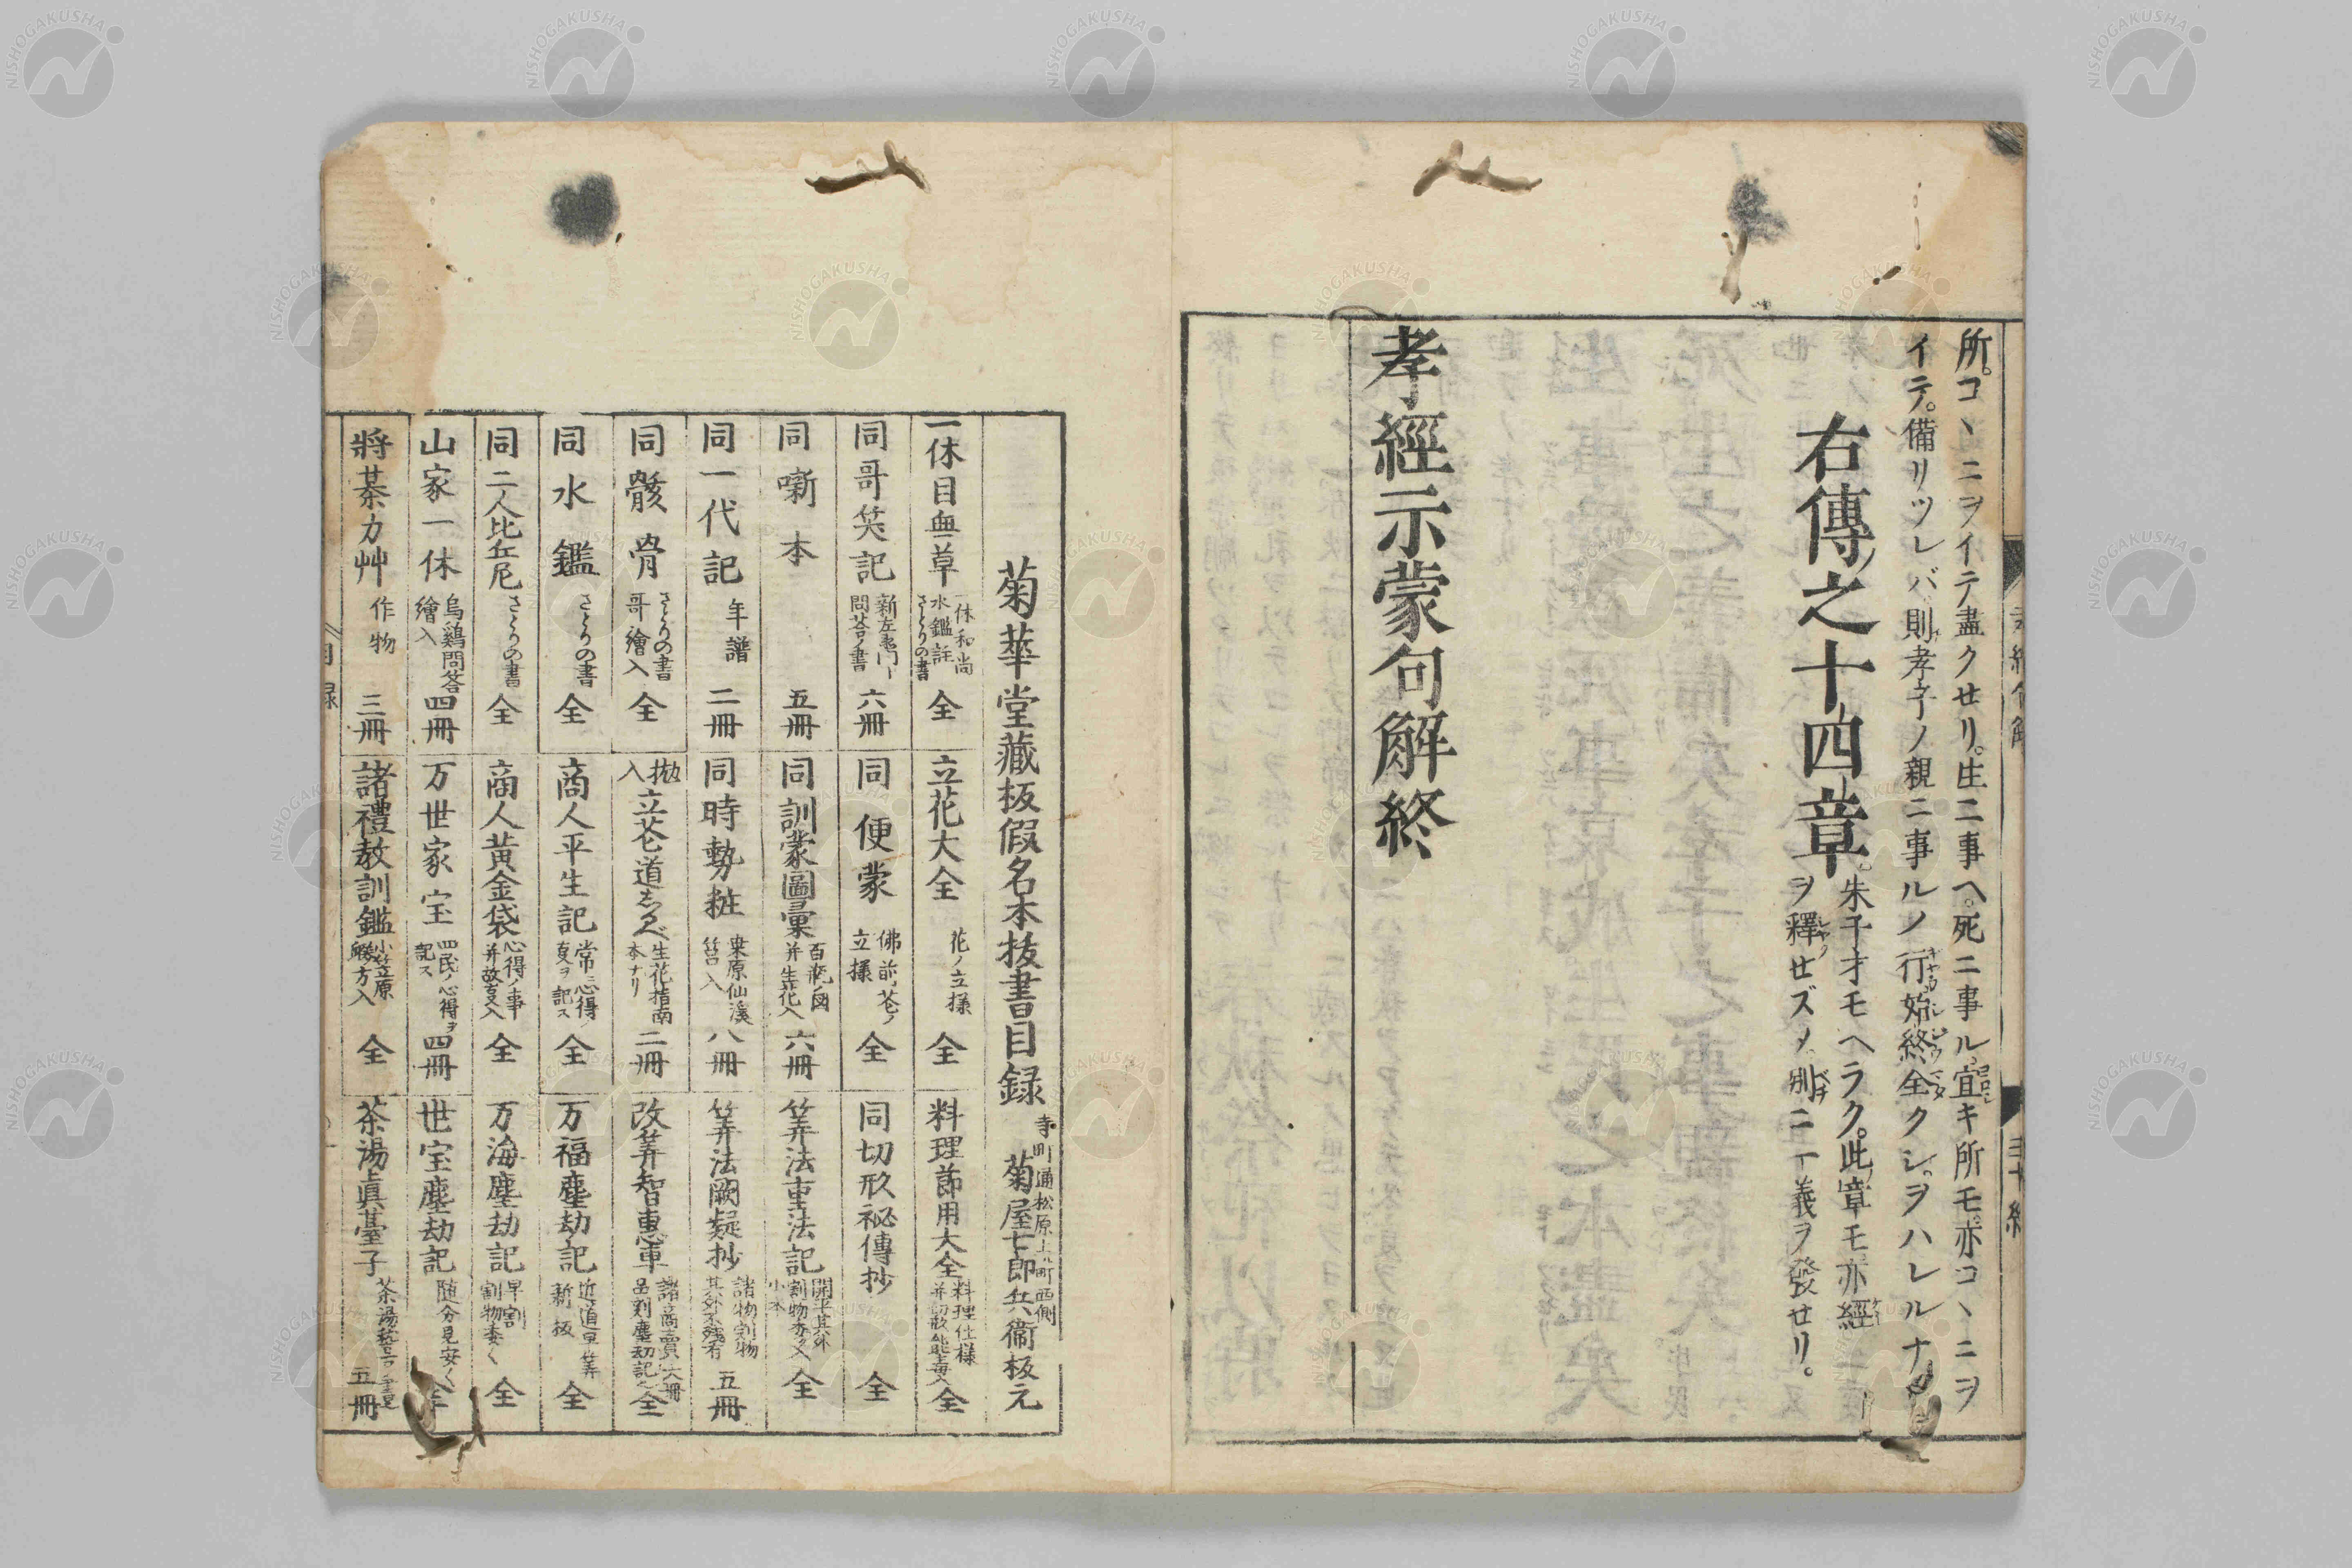 所。コヽニヲイテ盡クせリ。生ニ事ヘ。死ニ事ル。宜キ所モ。亦コヽニヲ
イテ。備リツレバ則孝子ノ親ニ事ルノ行。始終全クシ。ヲハレルナ
右傳之十四章。
朱子才モヘラク。此章モ亦經
ヲ釋せズ〆。別ニ一義ヲ發せリ。
孝經示蒙句解終
菊華堂藏板假名本抜書目録
寺町通松原上ル町西側
菊屋七郎兵衞板元
一休目無草 一休和尚水鑑註さとりの書 全
立花大全 花ノ立様 全
料理節用大全 料理仕様并切形能毒入 全
同哥笑記 新左衛門ト問荅ノ書 六冊
同便蒙 佛前花ノ立様 全
同切形秘傳抄 全
同噺本 五冊
同訓蒙圖彙 百瓶図并生花入 六冊
筭法重法記 開平其外割物委ク入小本 全
同一代記 年譜 二冊
同時勢粧 桒原仙溪筥入 八冊
筭法闕疑抄 諸物割物其外不残有 五冊
同骸骨 さとりの書哥繪入 全
抛入立花道志るべ 生花指南本ナリ 二冊
改筭智惠車 諸商賣 全
同水鑑 さとりの書 全
商人平生記 常ニ心得ノ夏ヲ記ス 全
万福塵劫記 近道早筭新板 全
同二人比丘尼 さとりの書 全
商人黄金袋 心得ノ事并故夏入 全
万海塵劫記 早割割物委く 全
山家一休 烏鷄問荅繪入 四冊
万世家宝 四民ノ心得ヲ記ス 四冊
世宝塵劫記 随分見安く 全
將棊力艸 作物 三冊
諸禮教訓鑑 小笠原躾方入 全
茶湯眞臺子 五冊